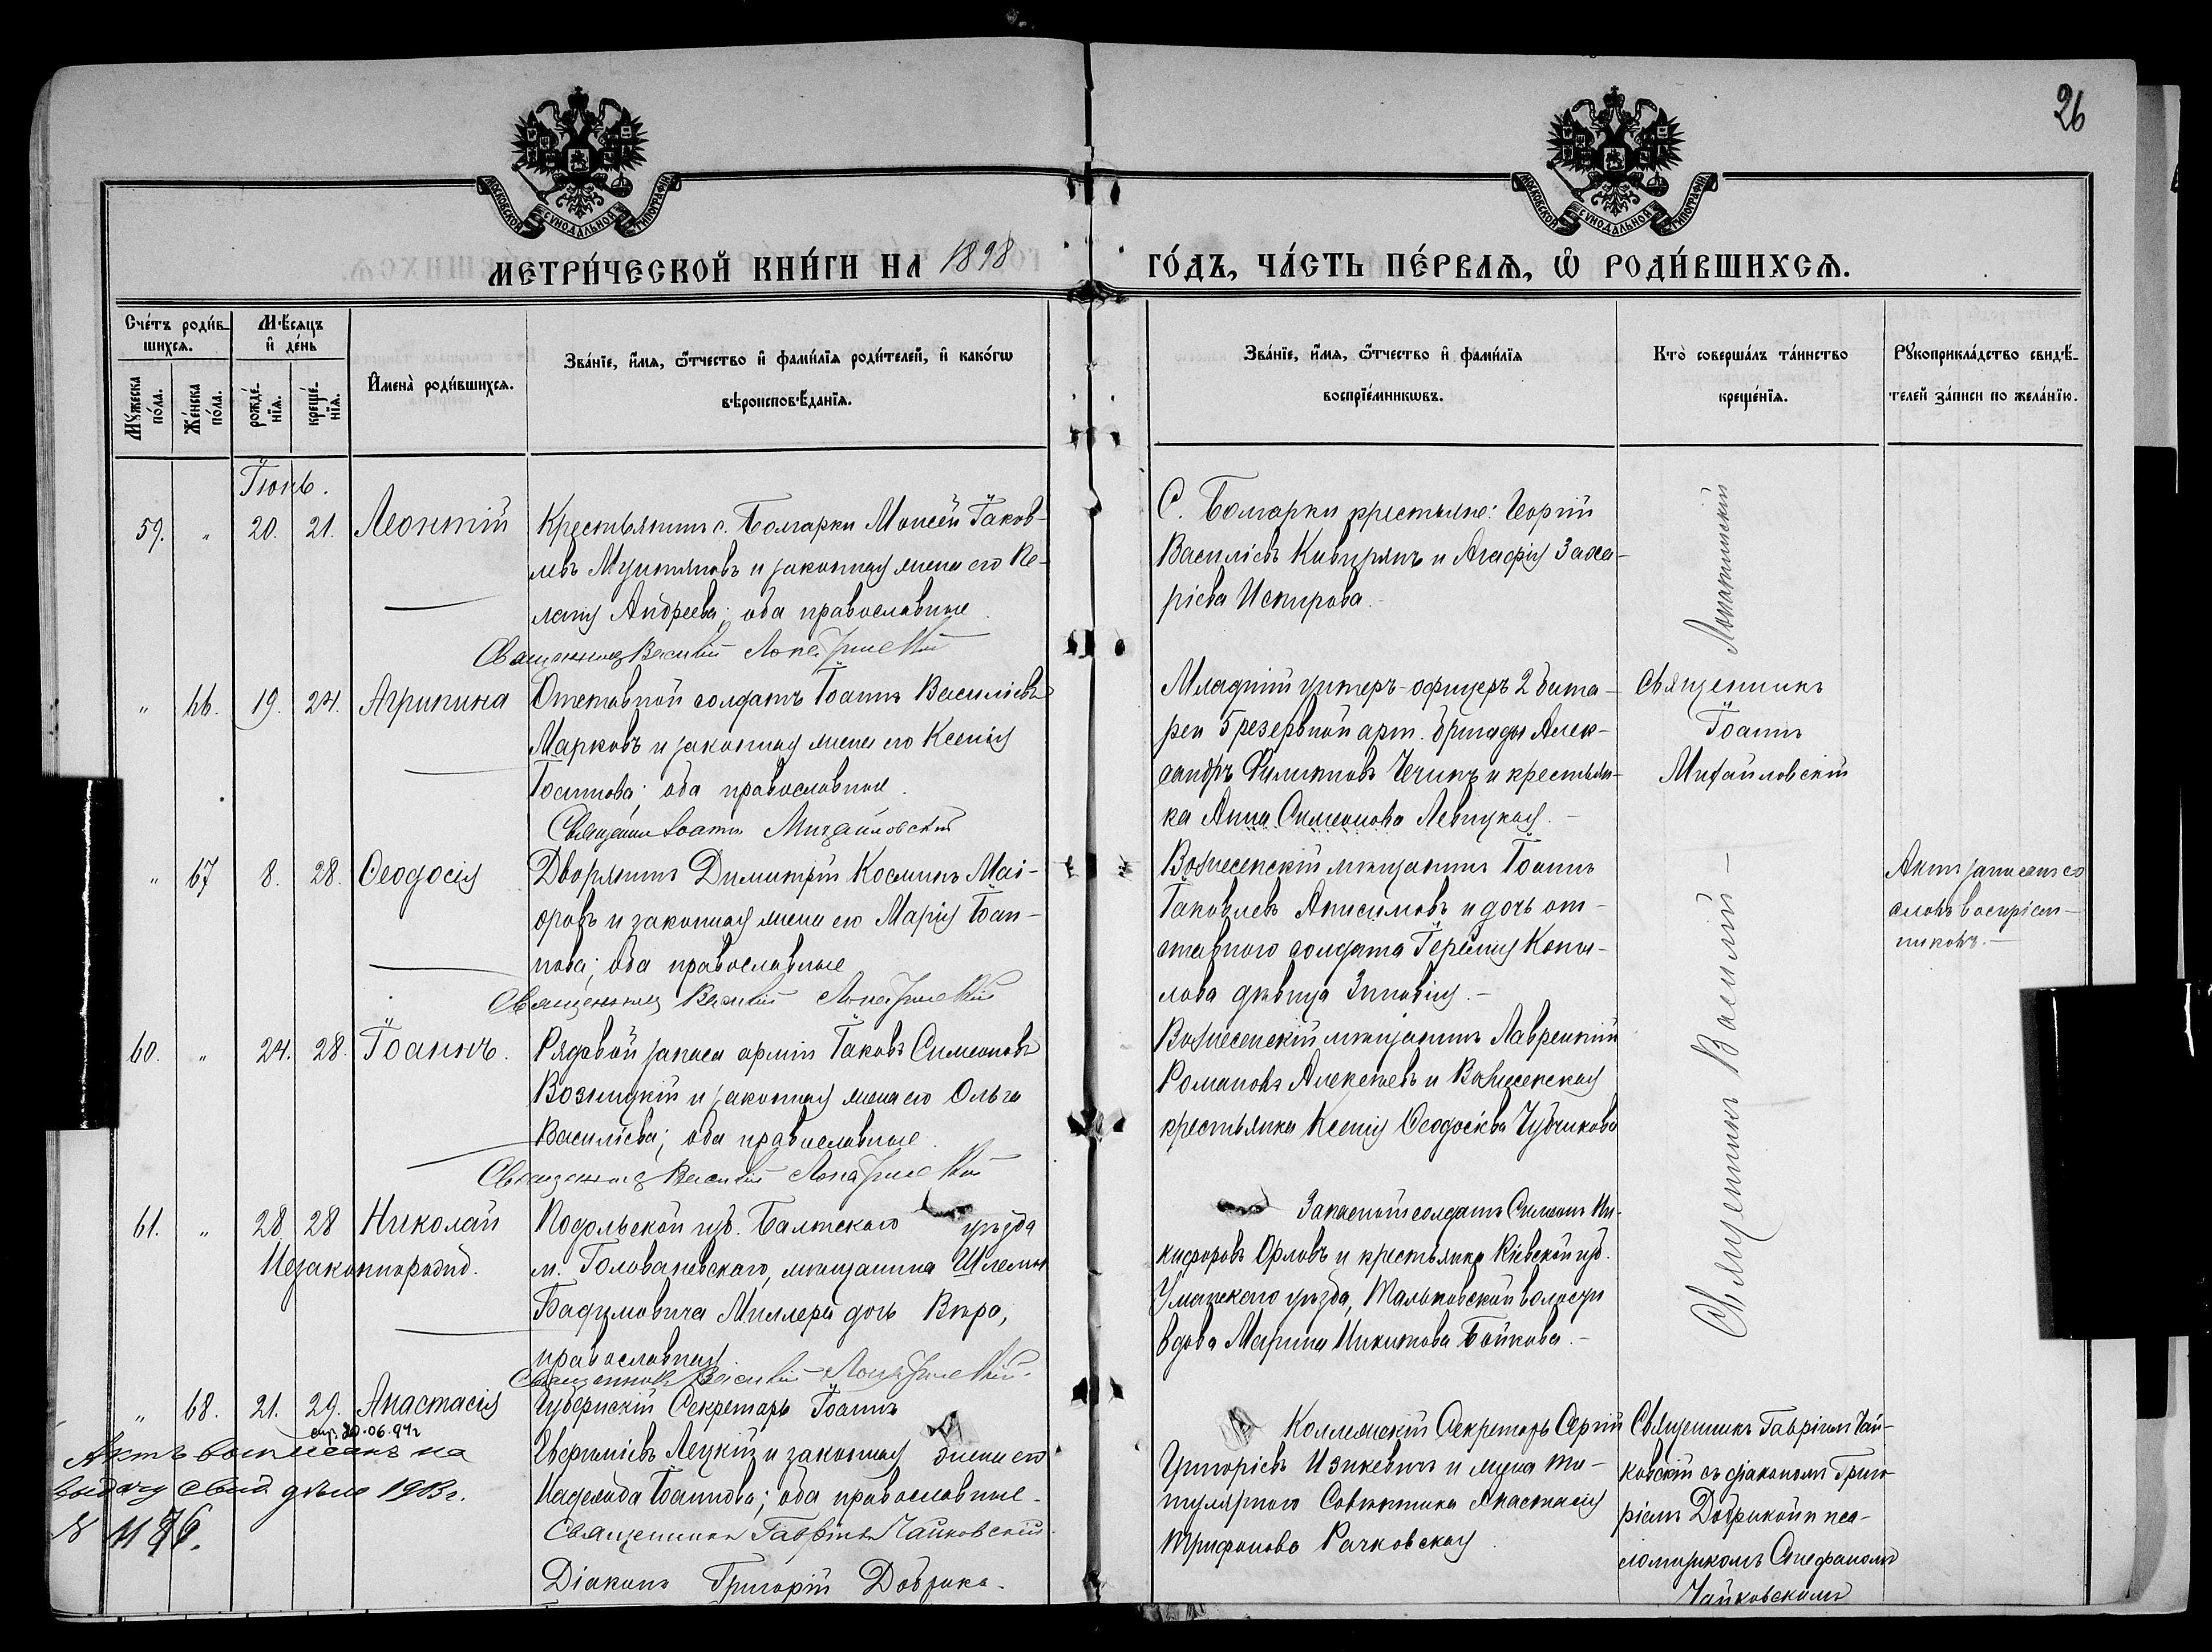 26
МОСКОВСКОЙ СѴНОДАЛЬНОЙ ТИПОГРАФІИ
МОСКОВСКОЙ СѴНОДАЛЬНОЙ ТИПОГРАФІИ
МЕТРИ́ЧЕСКОЙ КНИ́ГИ НА 1898 ГО́ДЪ, ЧА́СТЬ ПЕ́РВАѦ, Ѡ҆ РОДИ́ВШИХСѦ.
Сче́тъ роди́в-
шихсѧ.
Мꙋ́жеска по́ла.
Же́нска по́ла.
Мѣ́сѧцъ
и҆ де́нь
рожде́-
нїѧ.
креще́-
нїѧ.
И҆мена̀ роди́вшихсѧ.
Зва́нїе, и҆́мѧ, ѻ҆́тчество и҆ фами́лїѧ роди́телей, и҆ како́гѡ
вѣроисповѣ́данїѧ.
Зва́нїе, и҆́мѧ, ѻ҆́тчество и҆ фами́лїѧ
воспрїе́мникѡвъ.
Кто̀ соверша́лъ та́инство
креще́нїѧ.
Рꙋкоприкла́дство свидѣ́-
телей за́писи по жела́нїю.
Іюнь.
59. " 20. 21. Леонтій
Крестьянинъ с. Болгарки Моисей Іаков-
левъ Мунтяновъ и законная жена его Пе-
лагія Андреева; оба православные.
Священникъ Василий Лопатинский
С. Болгарки крестьяне: Георгій
Василіевъ Кивирянъ и Агафія Заха-
ріева Испирова.
" 66. 19. 24. Агрипина
Отставной солдатъ Іоаннъ Василіевъ
Марковъ и законная жена его Ксенія
Іоаннова; оба православные.
Священник Іоаннъ Михайловский
Младшій унтеръ-офицеръ 2 бата-
реи 5 резервной арт. бригады Алек-
сандръ Филиповъ Чечинъ и крестьян-
ка Анна Симеонова Левицкая.-
Священникъ
Іоаннъ
Михайловскій
" 67 8. 28. Ѳеодосія
Дворянинъ Димитрій Косминъ Маі-
оровъ и законная жена его Марія Іоан-
нова; оба православные
Священникъ Василий Лопатинский
Вознесенскій мѣщанинъ Іоаннъ
Іаковлевъ Анисимовъ и дочь от-
ставного солдата Іереміи Копы-
лова дѣвица Зиновія.-
Актъ записанъ со
словъ воспріем-
никовъ.-
60. " 24. 28. Іоаннъ.
Рядовой запаса арміи Іаковъ Симеоновъ
Возницкій и законная жена его Ольга
Василіева; оба православные.
Священникъ Василий Лопатинский
Вознесенскій мѣщанинъ Лаврентій
Романовъ Алексѣевъ и Вознесенская
крестьянка Ксенія Ѳеодосіева Чубчикова
61. " 28. 28 Николай
Незаконнорожд.
Подольской губ. Балтского уѣзда
м. Голованевскаго, мѣщанина Шлемы
Бадумовича Миллера дочь Вѣра,
православная.
Священникъ Василий Лопатинский.
Запасной солдатъ Симеонъ Ни-
кифоровъ Орловъ и крестьянка Кіевской губ.
Уманского уѣзда, Тальковской волости
вдова Марина Никитова Бойкова.-
Священникъ Василий Лопатинский
" 68. 21. 29. Анастасія
30.06.94г
Актъ выписанъ на
выдачу свид. 1913 г.
N 1176.
Губернскій Секретарь Іоаннъ
Евфиміевъ Лецкій и законная жена его
Надежда Іоаннова; оба православные.
Священникъ Гавріилъ Чайковский
Діаконъ Григорій Добрика.
Коллежскій Секретарь Сергій
Григоріевъ Изикевичъ и жена ти-
тулярного Совѣтника Анастасія
Трифонова Рачковская.
Священникъ Гавріилъ Чай-
ковскій съ діакономъ Григо-
ріемъ Добрикой и пса-
ломщикомъ Стефаномъ
Чайковскимъ